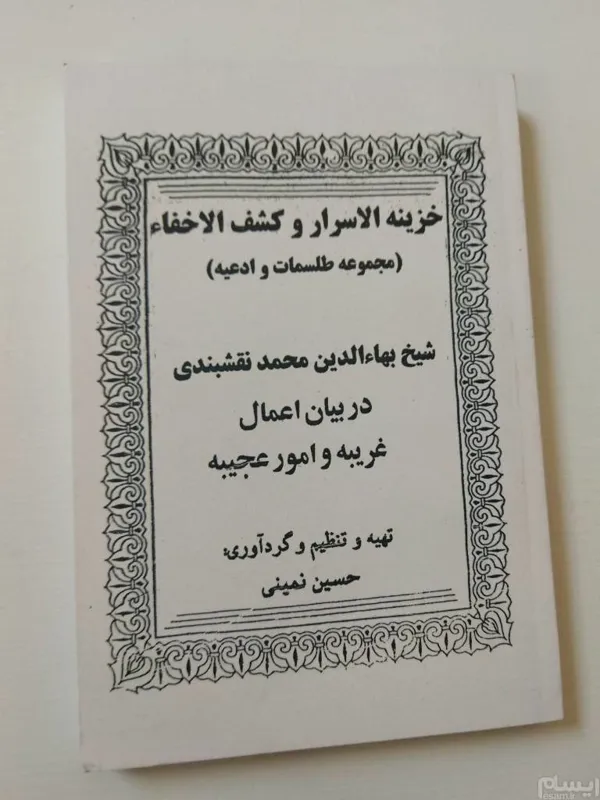 خزینه الاسرار و کشف الاخفاء
(مجموعه طلسمات و ادعیه)
شیخ بهاءالدین محمد نقشبندی
در بیان اعمال
غریبه و امور عجیبه
تهیه و تنظیم و گردآوری:
حسین نمینی
ایسام
esam.ir